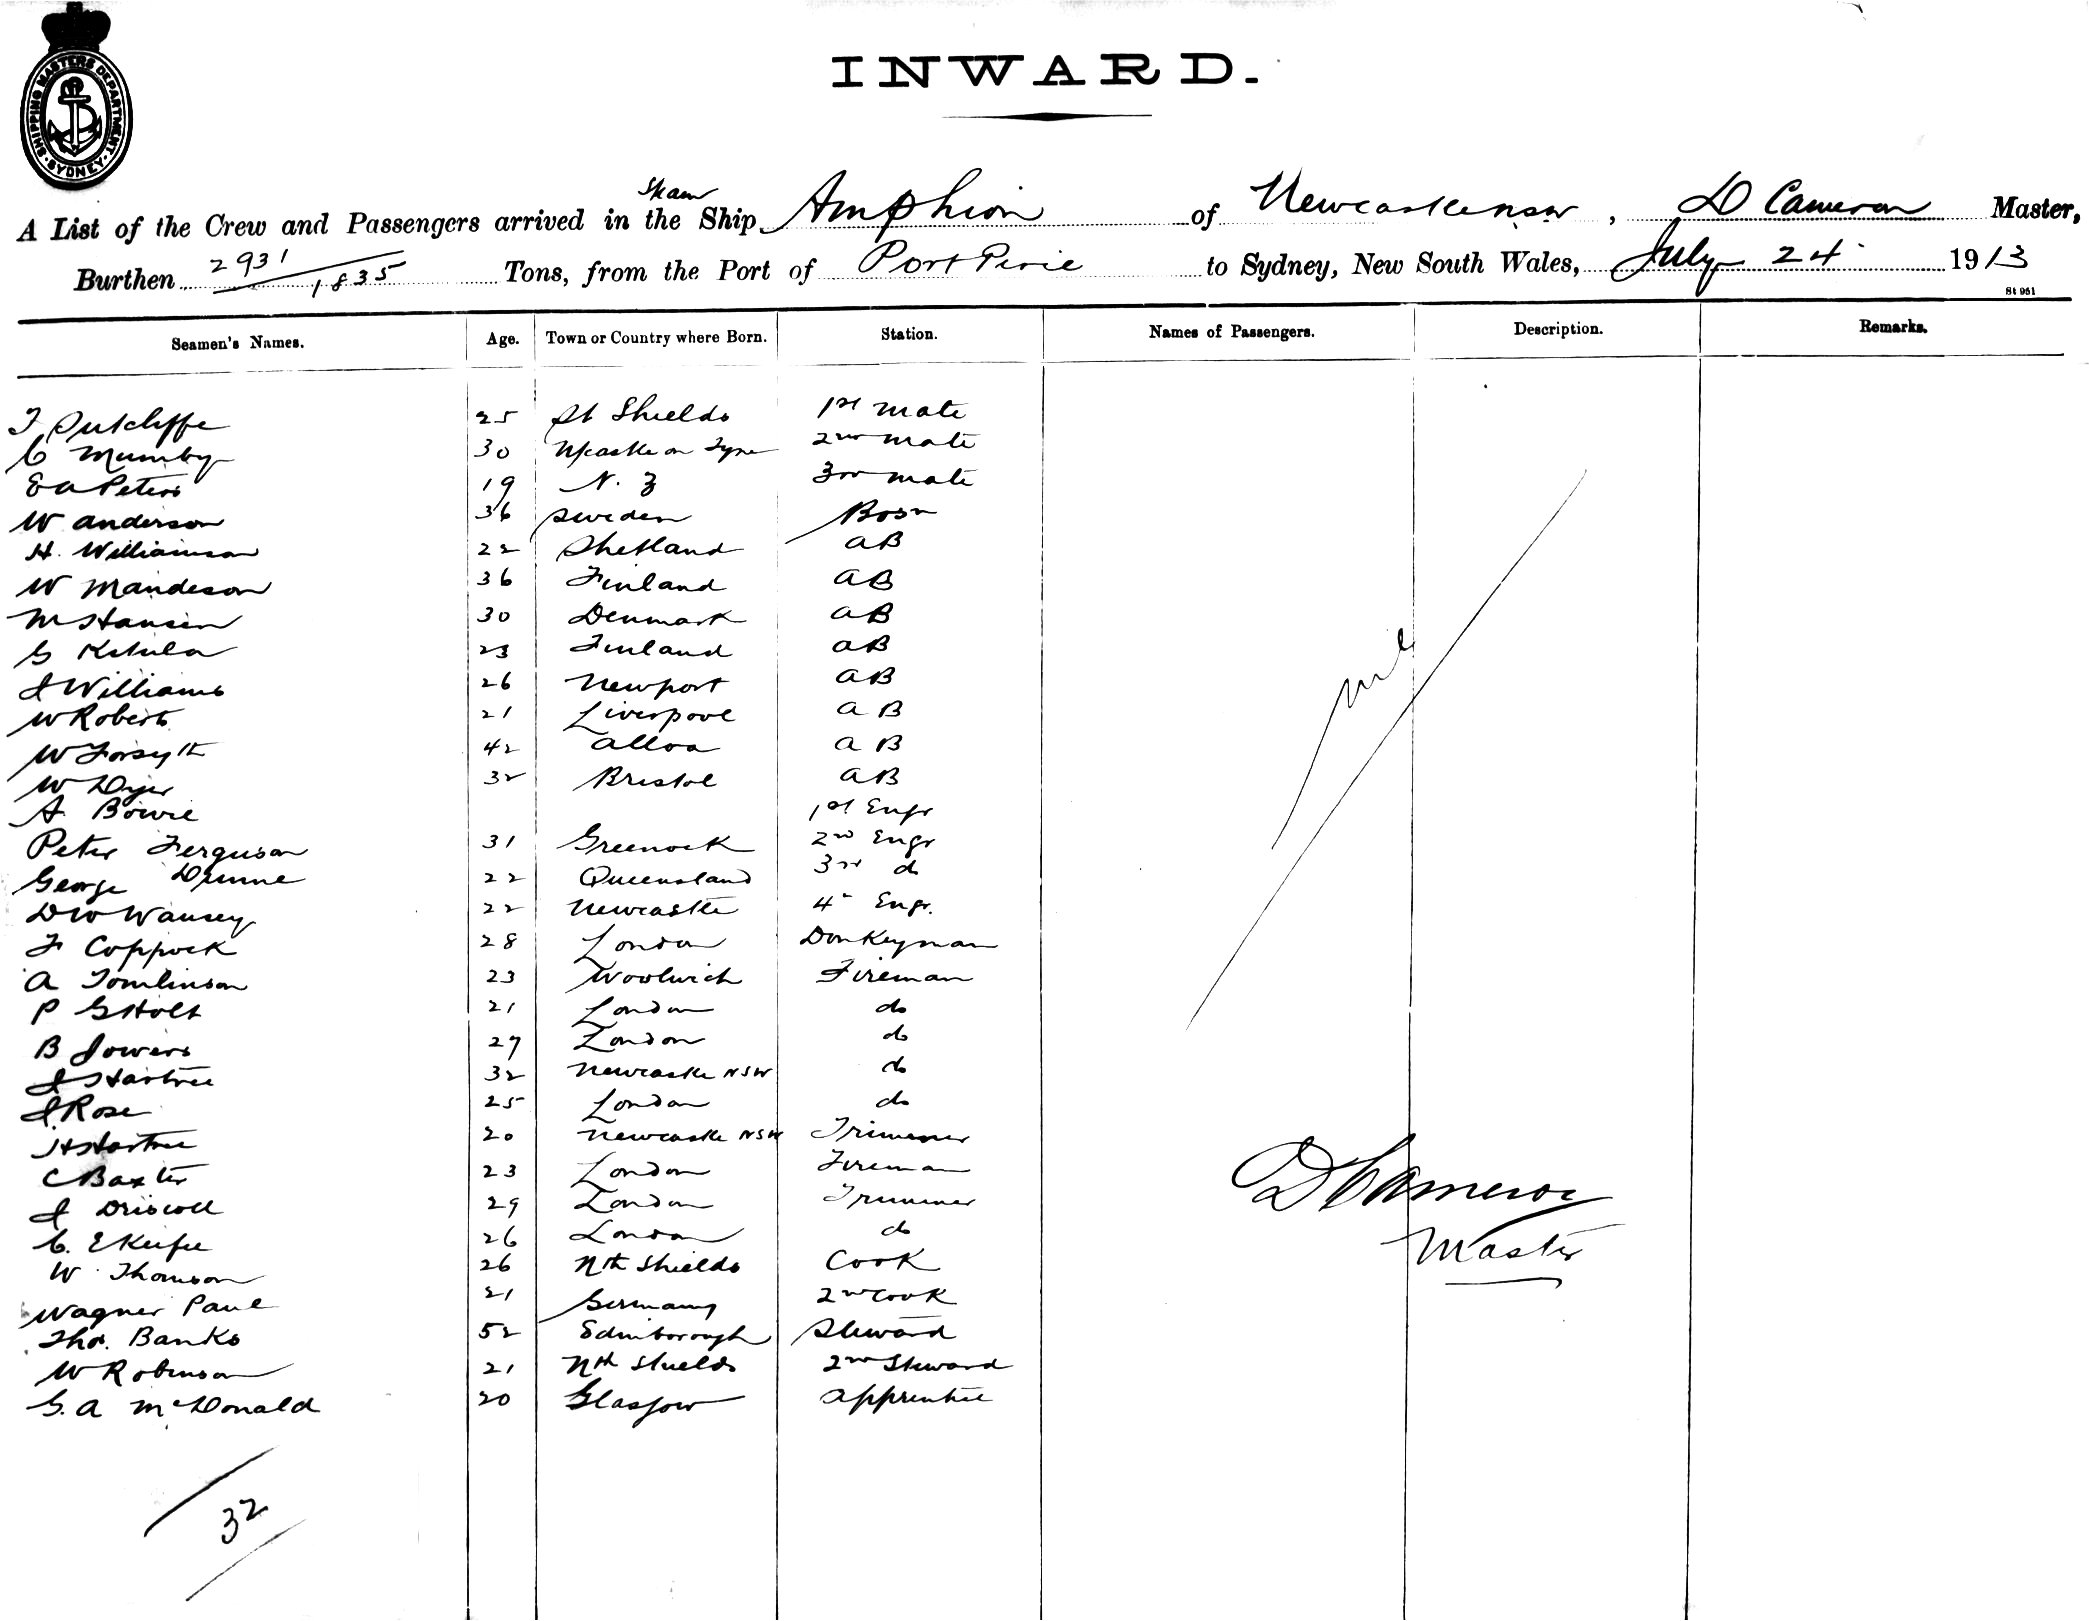 SHIPPING MASTERS DEPARTMENT · SYDNEY ·
INWARD.
Steam
A List of the Crew and Passengers arrived in the Ship Amphion of Newcastle NSW, D Cameron Master,
Burthen 2931 / 1835 Tons, from the Port of Port Pirie to Sydney, New South Wales, July 24 1913
St 951
Seamen's Names. Age. Town or Country where Born. Station. Names of Passengers. Description. Remarks.
T Sutcliffe 25 St Shields 1st mate
C Mumby 30 N/castle on Tyne 2nd mate
E A Peters 19 N. Z 3rd mate
W Anderson 36 Sweden Bosn
H. Williamson 22 Shetland AB
W Mandeson 36 Finland AB
M Hansen 30 Denmark AB
G 23 Finland AB
J Williams 26 Newport AB
W Roberts 21 Liverpool AB
W Forsyth 42 Alloa AB
W Dyer 32 Bristol AB
A. Bowie 1st Engr
Peter Ferguson 31 Greenock 2nd Engr
George Dunne 22 Queensland 3rd do
D W Wansey 22 Newcastle 4th Engr.
F Coppock 28 London Donkeyman
A Tomlinson 23 Woolwich Fireman
P G Holt 21 London do
B Jowers 27 London do
J Hartree 32 Newcastle NSW do
J. Rose 25 London do
H Hartree 20 Newcastle NSW Trimmer
C Baxter 23 London Fireman
J Driscoll 29 London Trimmer
C. 26 London do
W Thomson 26 Nth Shields Cook
Wagner Paul 21 Germany 2nd Cook
Thos. Banks 52 Edinborough Steward
W Robinson 21 Nth Shields 2nd Steward
G. A McDonald 20 Glasgow Apprentice
nil
D Cameron
Master
32